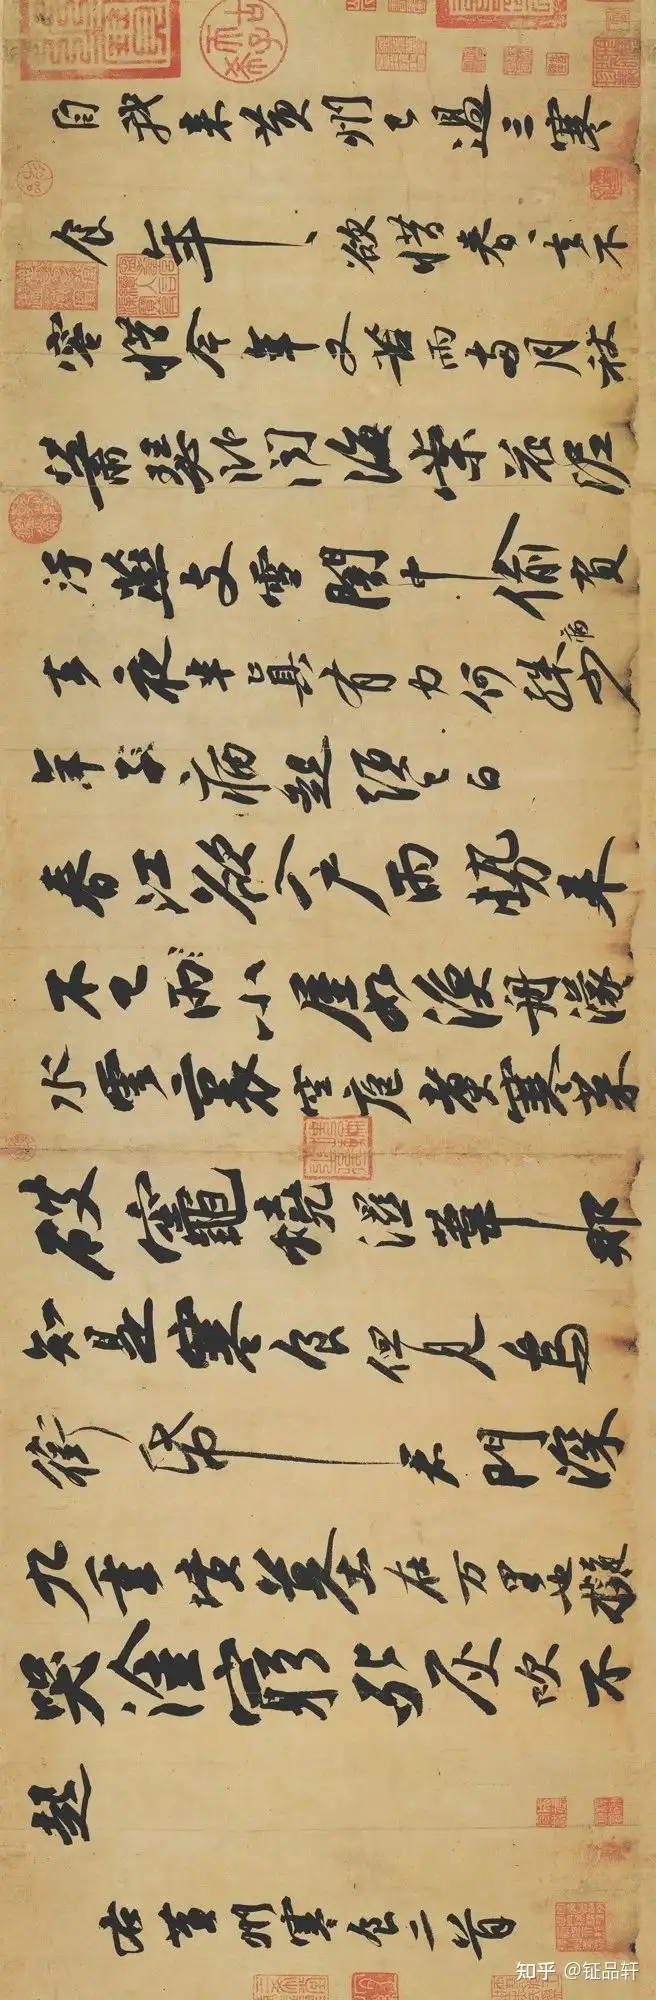 自我來黃州已過三寒
食年々欲惜春々去不
容惜今年又苦雨兩月秋
蕭瑟臥聞海棠花泥
汙燕支雪闇中偷負
去夜半真有力何殊病少
年子病起頭已白
春江欲入戶雨勢來
不已雨小屋如漁舟濛々
水雲裏空庖煮寒菜
破竈燒濕葦那
知是寒食但見烏
銜帋君門深
九重墳墓在万里也擬
哭塗窮死灰吹不
起
右黃州寒食二首
知乎 @钲品轩